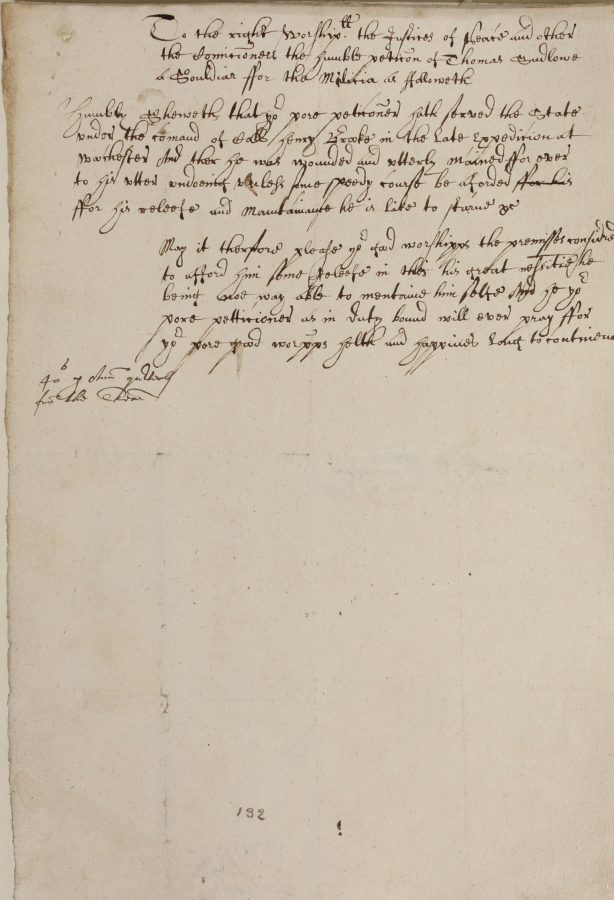 To the right Worshipll: the Justices of Peace and other
the Comicioners the humble peticon of Thomas Gudlowe
a Souldiar ffor the Militia as ffolloweth
Humbly Sheweth, that yor pore peticoner hath served the State
under the comand of Coll: Henry Brooke in the Late Expedicion at
Worchester And ther he was wounded and utterly maimed ffor ever
to his utter undoeing unless some speedy course be aforded ffor his
ffor his releefe and Maintainance he is like to starve &c
May it therfore please yor good worshipps the premisses considered
to afford him some Releefe in this his great nessitie he
being noe way able to mentaine him selfe And he yor
pore petticioner as in duty bound will ever pray ffor
yor pore good worspps helth and happines Long to continew
40s p Ann
for the
192